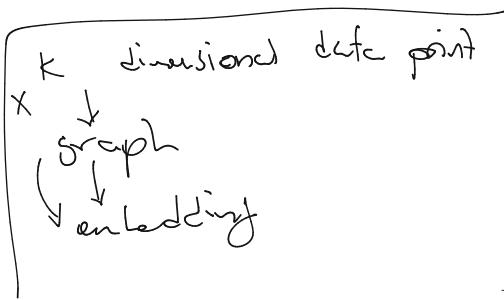 k dimensional data point
x
graph
embedding